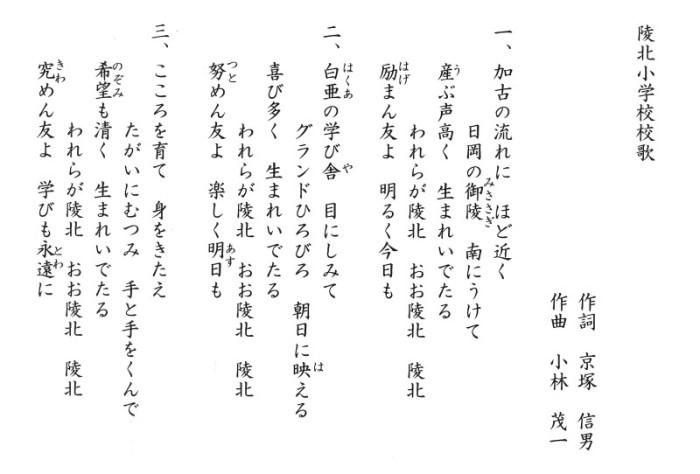 陵北小学校校歌
作詞 京塚 信男
作曲 小林 茂一
一、加古の流れに ほど近く
日岡の御陵 南にうけて
みささぎ
産ぶ声高く 生まれいでたる
う
われらが陵北 おお陵北 陵北
励まん友よ 明るく今日も
はげ
二、白亜の学び舎 目にしみて
はくあ
や
グランドひろびろ 朝日に映える
は
喜び多く 生まれいでたる
われらが陵北 おお陵北 陵北
努めん友よ 楽しく明日も
つと
あす
三、こころを育て 身をきたえ
たがいにむつみ 手と手をくんで
希望も清く 生まれいでたる
のぞみ
われらが陵北 おお陵北 陵北
究めん友よ 学びも永遠に
きわ
とわ